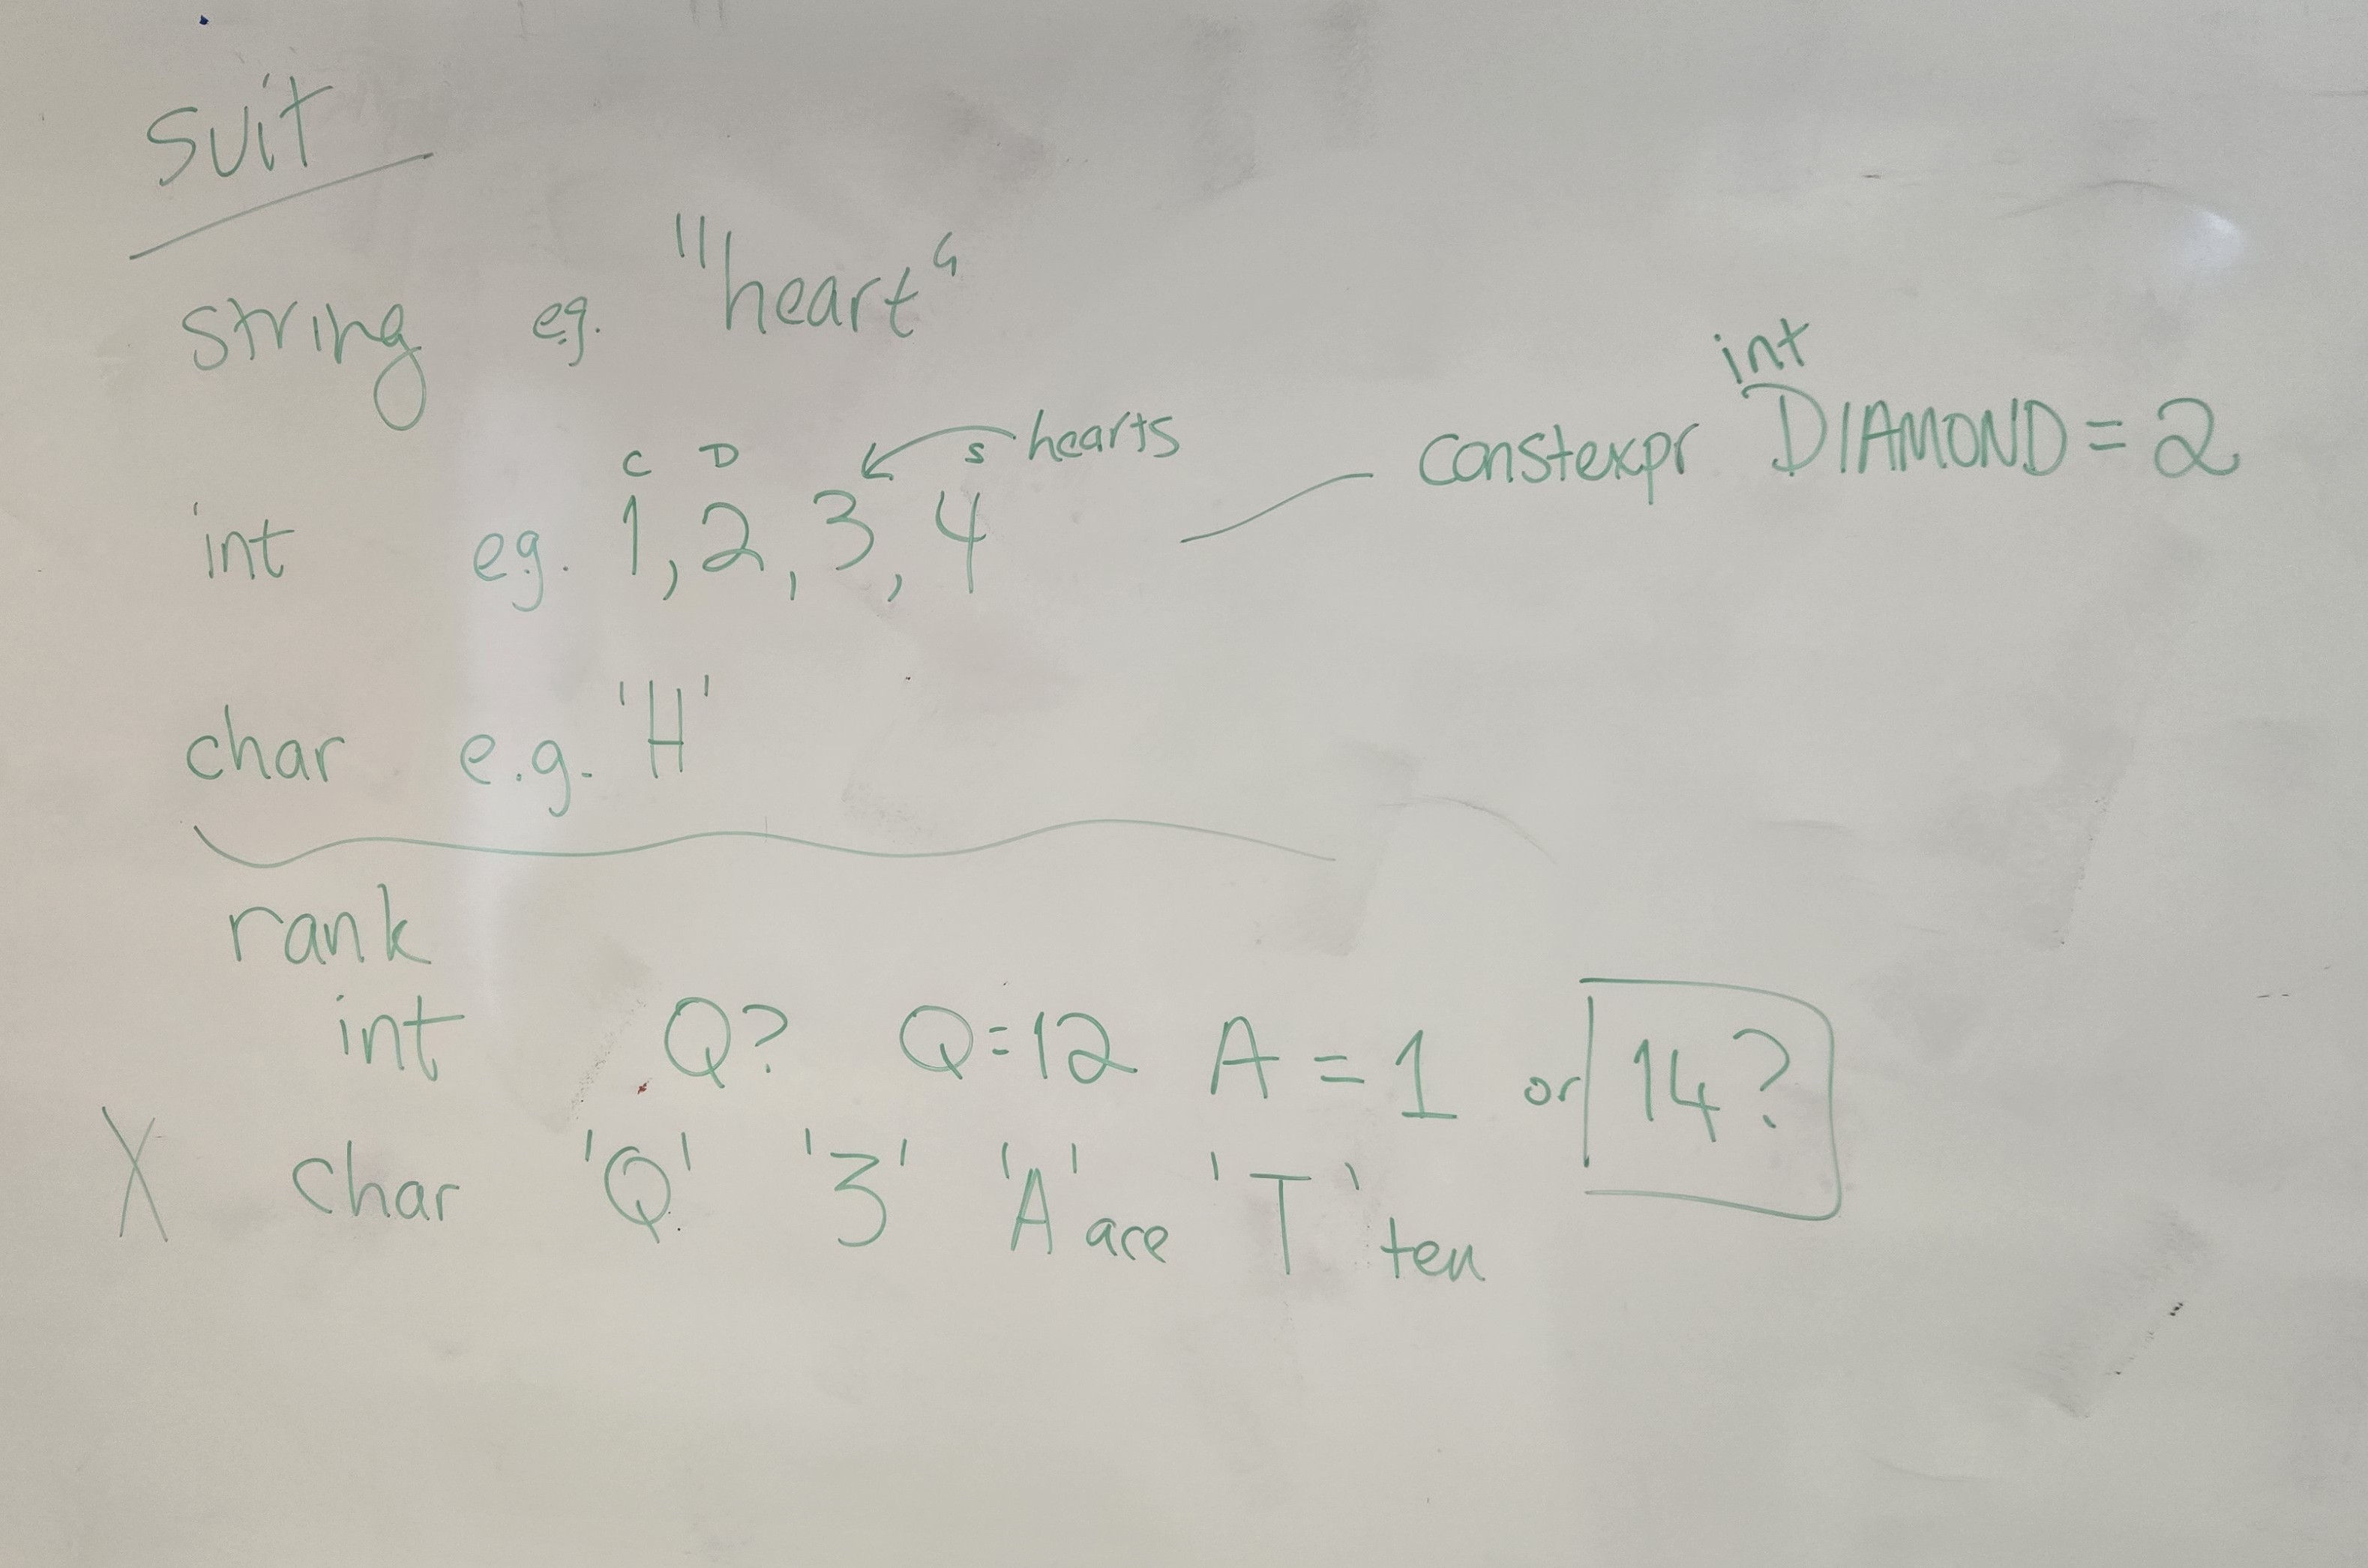 suit
string eg. "heart"
C D S hearts
int eg. 1, 2, 3, 4
int
constexpr DIAMOND = 2
char e.g. 'H'
rank
int Q? Q=12 A = 1 or 14?
X char 'Q' '3' 'A' ace 'T' ten